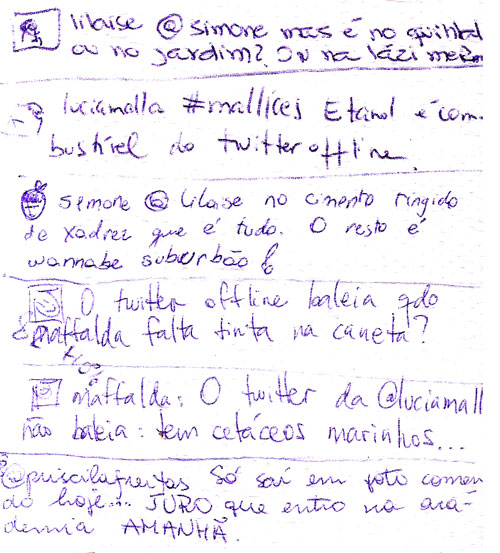 lilaise @simone mas é no quintal
ou no jardim? Ou na lázi mesm
luciamalla #mallices Etanol é com-
bustível do twitter offline.
simone @lilaise no cimento tingido
de xadrez que é tudo. O resto é
wannabe suburbão
O twitter offline baleia qdo
maffalda falta tinta na caneta?
maffalda: O twitter da @luciamall
não baleia: tem cetáceos marinhos...
@priscilafreitas Só saí em foto comen
do hoje... JURO que entro na aca-
demia AMANHÃ.